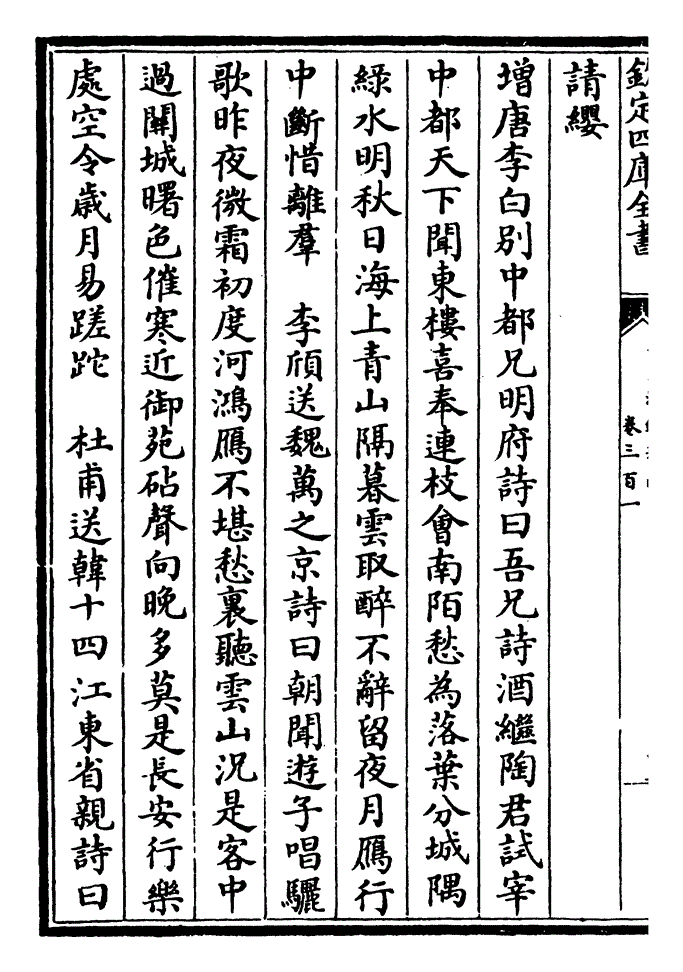 欽定四庫全書
卷三百一
請纓
增唐李白別中都兄明府詩曰吾兄詩酒繼陶君試宰
中都天下聞東樓喜奉連枝會南陌愁為落葉分城隅
綠水明秋日海上青山隔暮雲取醉不辭留夜月鴈行
中斷惜離羣　李頎送魏萬之京詩曰朝聞遊子唱驪
歌昨夜微霜初度河鴻鴈不堪愁裏聽雲山況是客中
過關城曙色催寒近御苑砧聲向晚多莫是長安行樂
處空令歲月易蹉跎　杜甫送韓十四江東省親詩曰